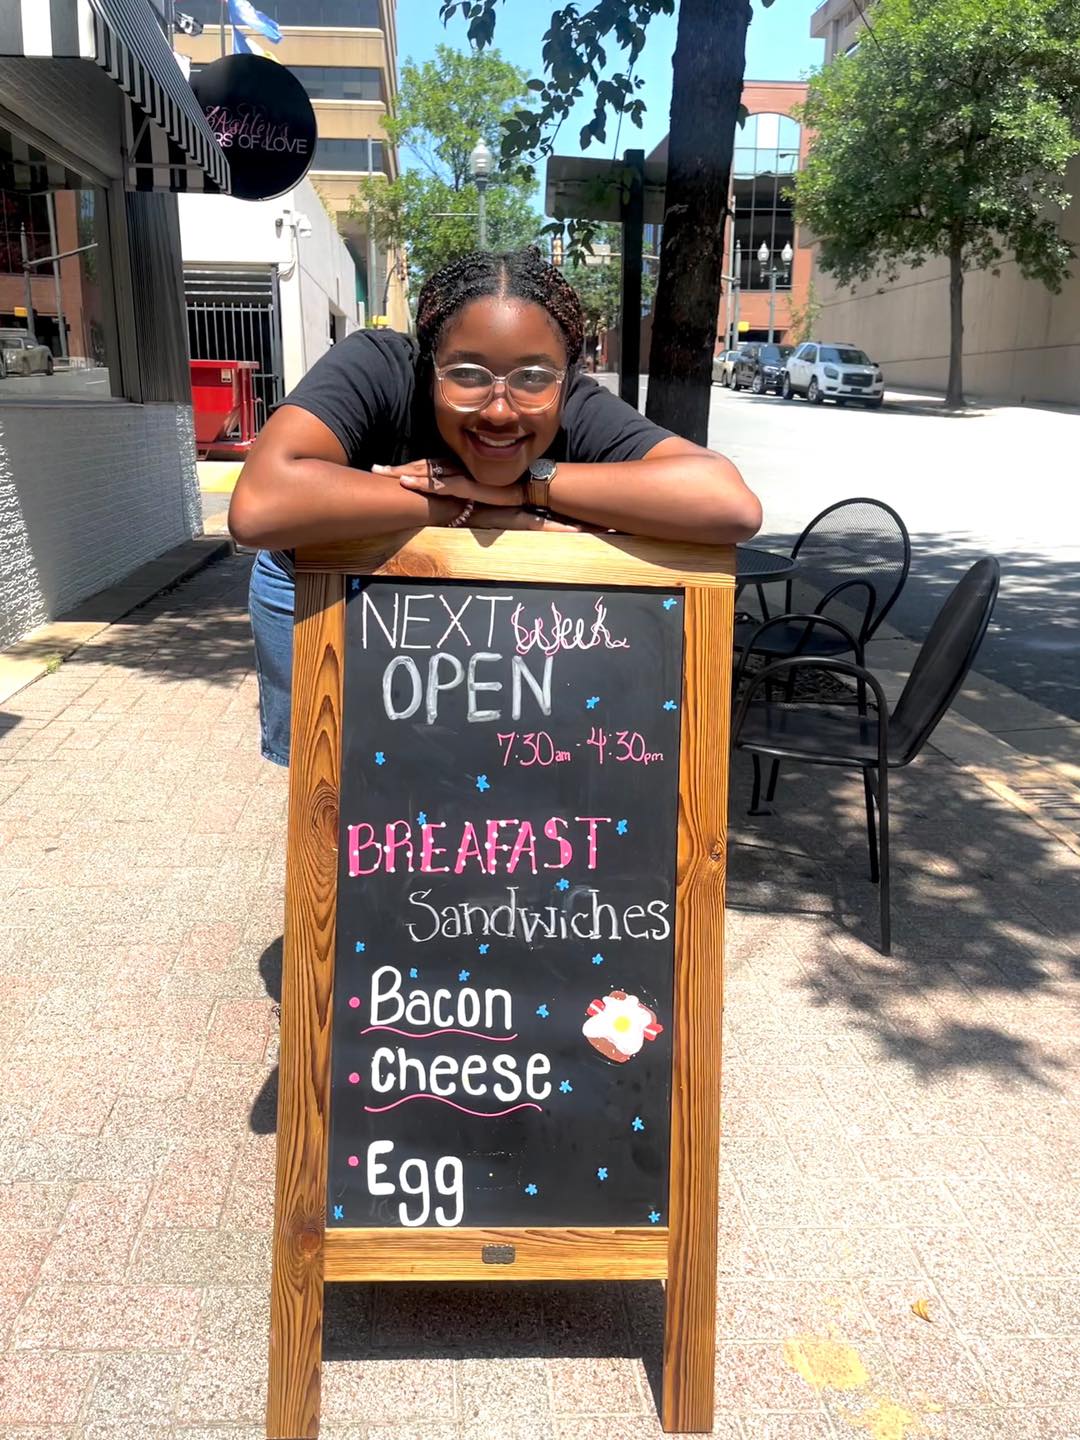 Ashley's
RS OF LOVE
NEXT Week
OPEN
7:30am - 4:30pm
BREAFAST
Sandwiches
• Bacon
• Cheese
• Egg